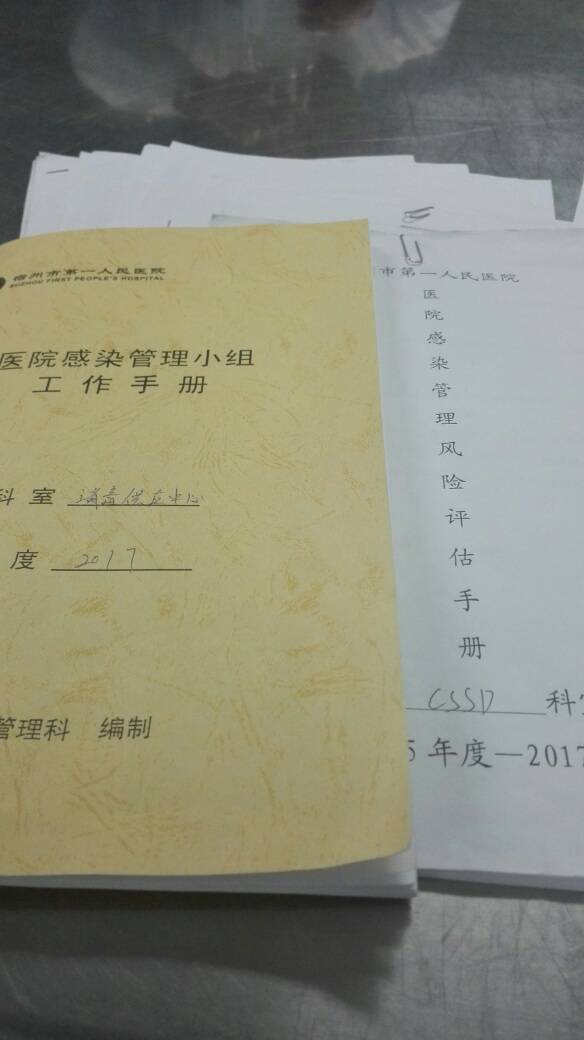 宿州市第一人民医院
SUZHOU FIRST PEOPLE'S HOSPITAL
医院感染管理小组
工作手册
科室 消毒供应中心
度 2017
管理科 编制
市第一人民医院
医院感染管理风险评估手册
CSSD 科室
5年度—2017